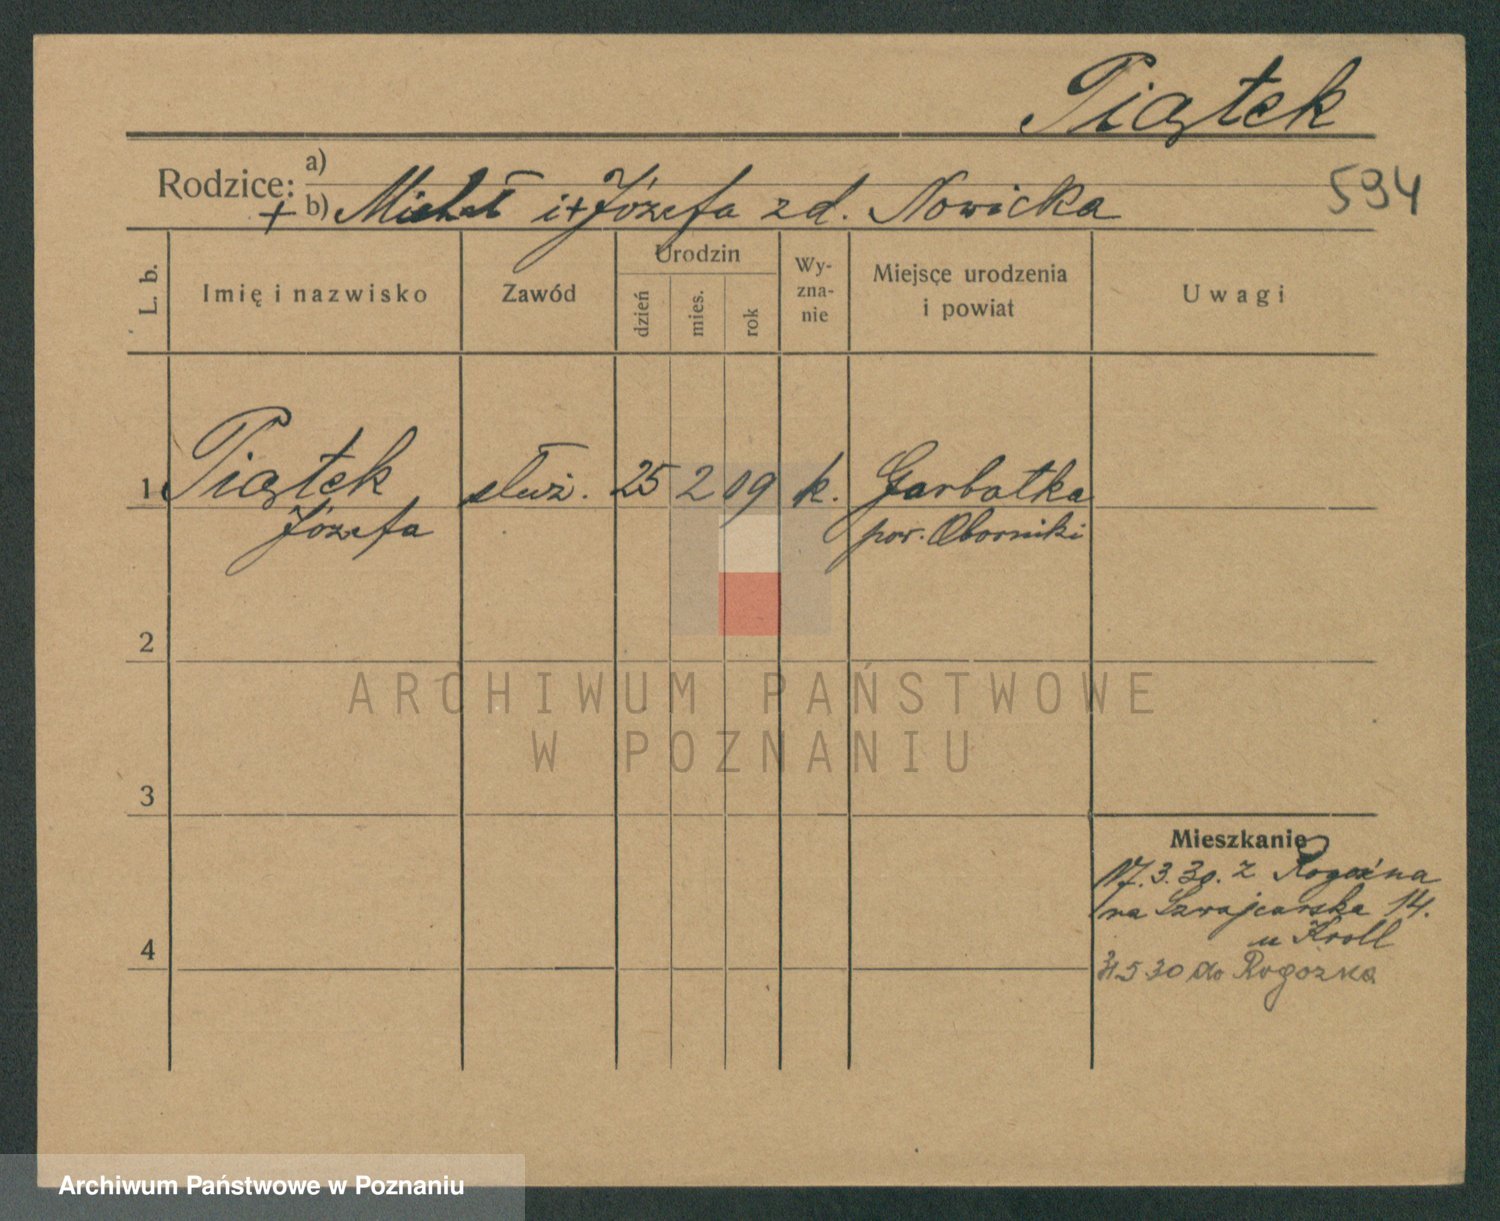 Piątek
594
Rodzice: a)
+ b) Michał i + Józefa zd. Nowicka
L. b.
Imię i nazwisko
Zawód
Urodzin
dzień
mies.
rok
Wy-
zna-
nie
Miejsçe urodzenia
i powiat
Uwagi
1 Piątek służ. 25 2 09 k. Garbatka
Józefa pow. Oborniki
2
3
4
Mieszkanie
17.3.30. z Rogoźna
na Szwajcarska 14.
u Kroll
31 5 30 do Rogoźna
ARCHIWUM PAŃSTWOWE
W POZNANIU
Archiwum Państwowe w Poznaniu